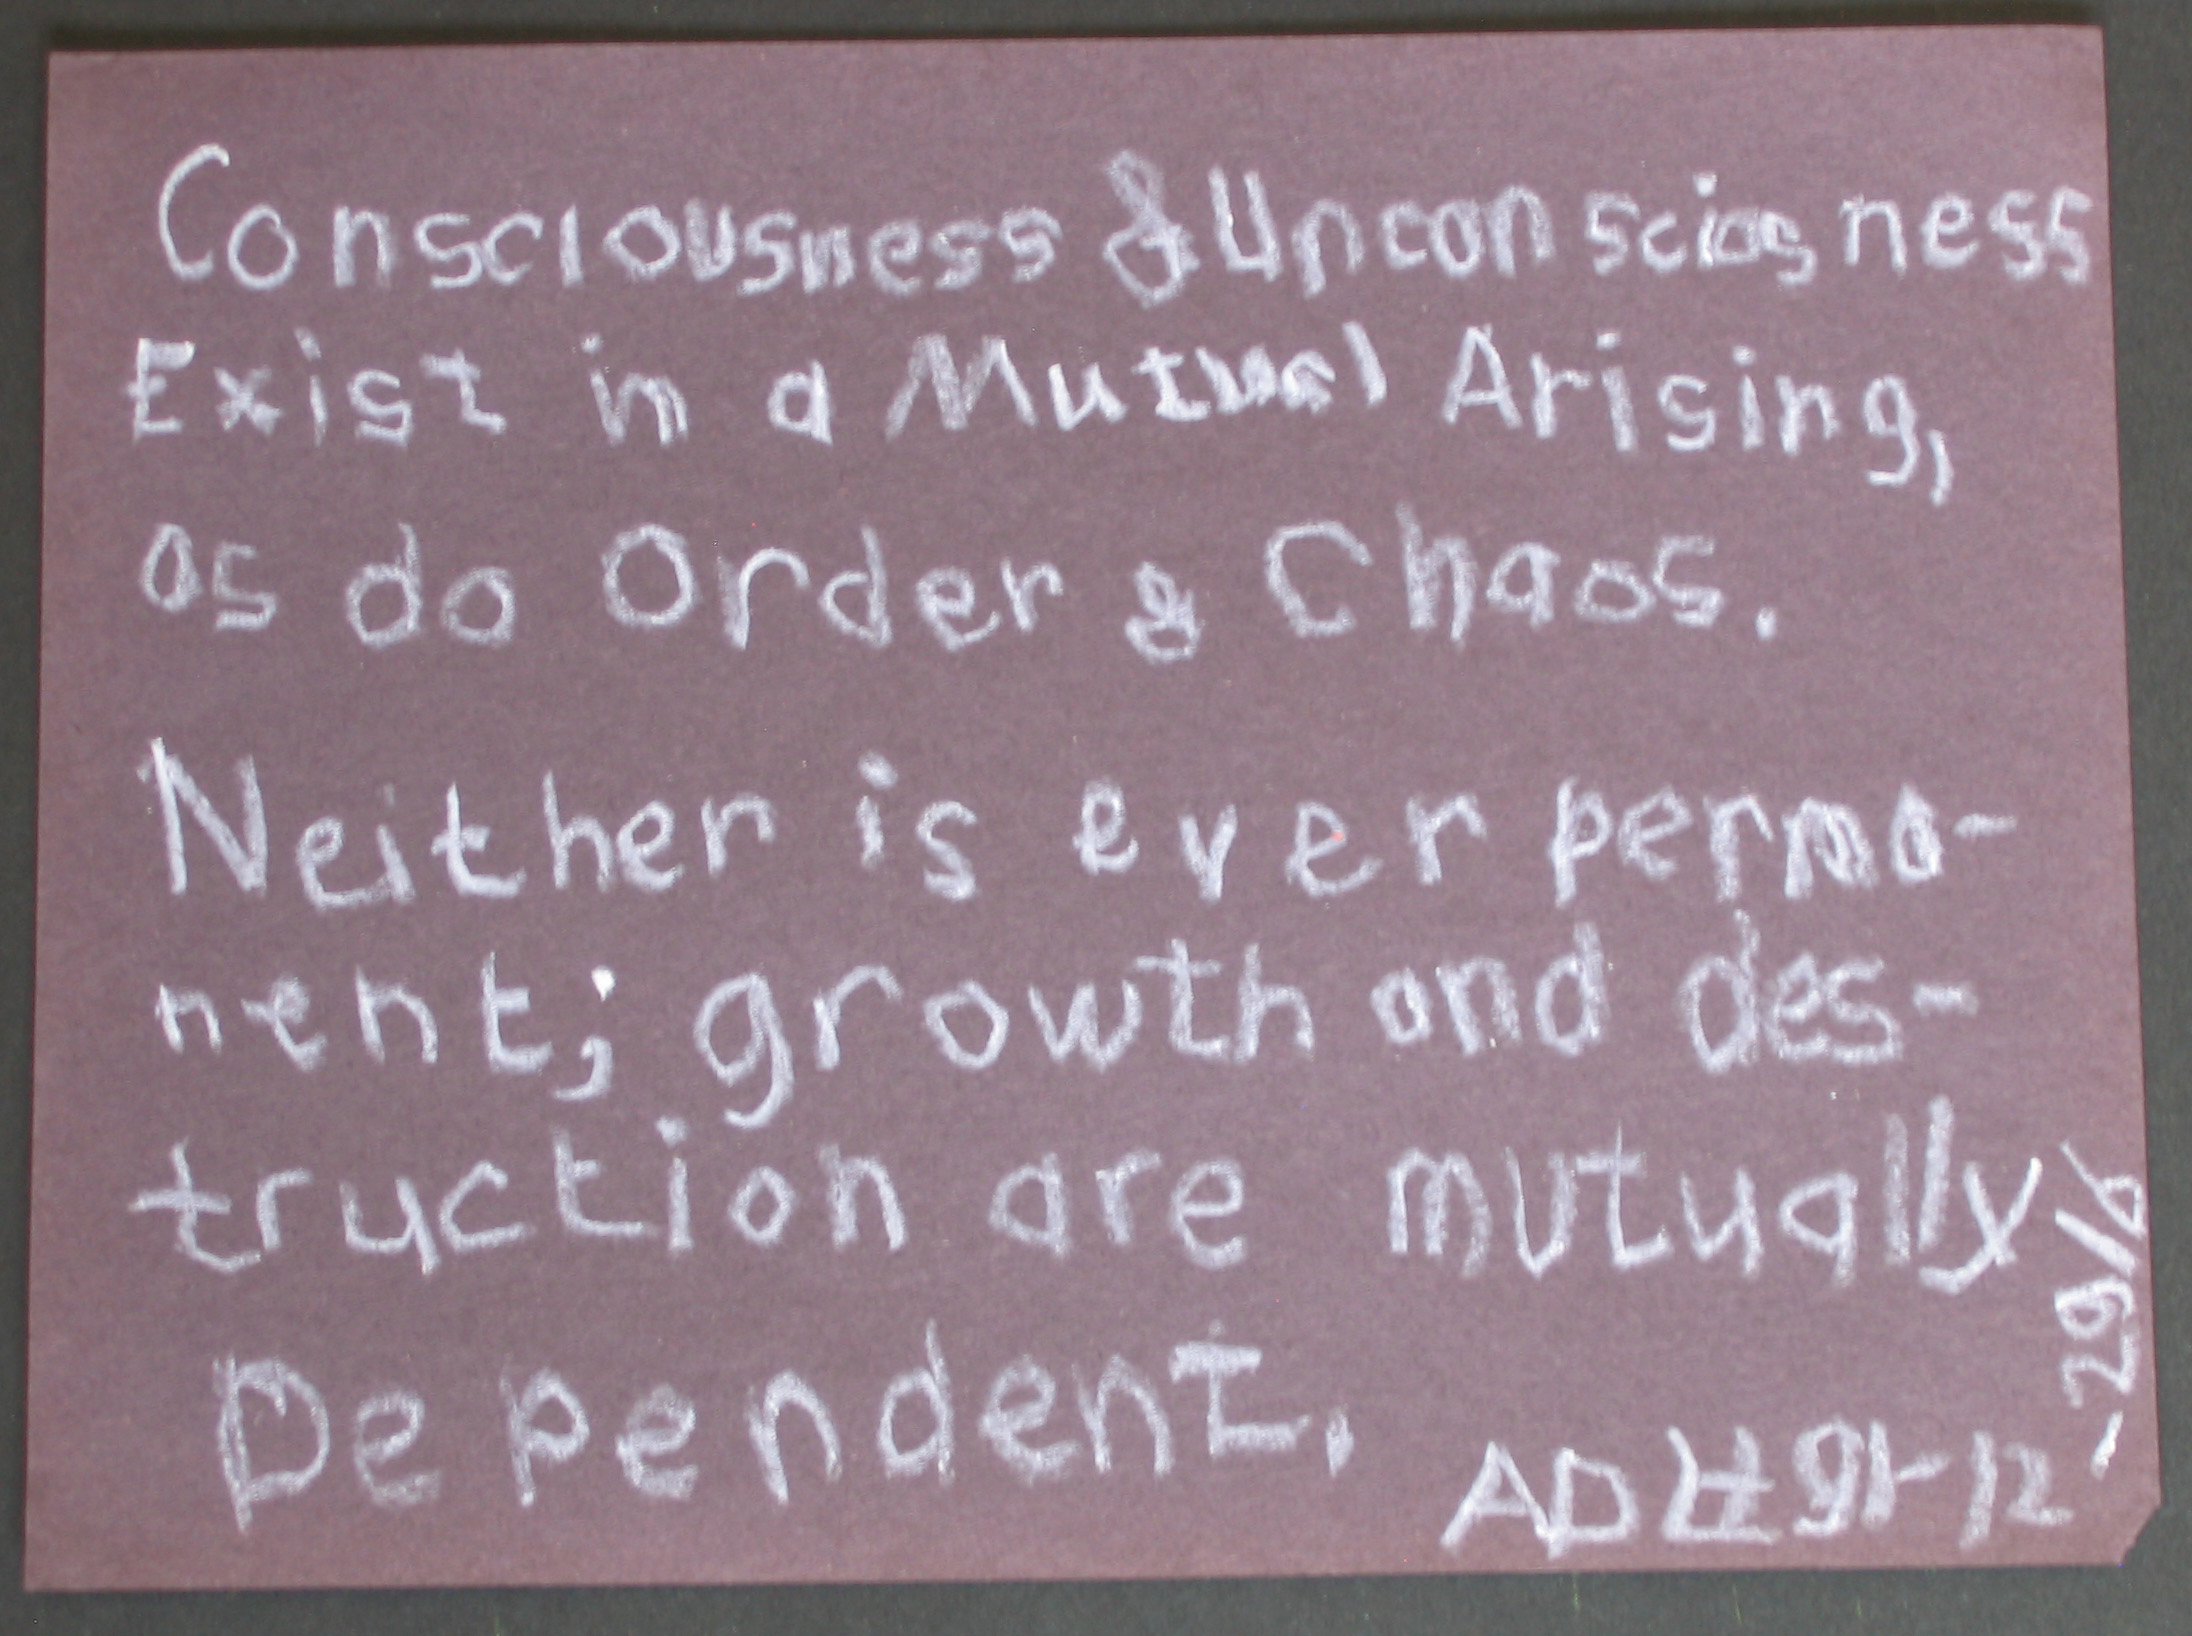 Consciousness & Unconsciosness
Exist in a Mutual Arising,
as do Order & Chaos.
Neither is ever perma-
nent; growth and des-
truction are mutually
Dependent.